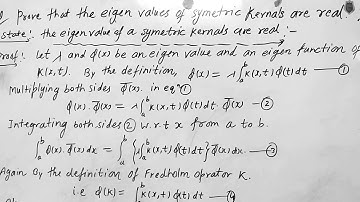 Prove that the eigen values of symetric Kernals are real.
State: the eigen value of a symetric kernals are real :-
Proof: let λ and ϕ(x) be an eigen value and an eigen function of
K(x,t). By the definition, ϕ(x) = λ∫ₐᵇ K(x,t) ϕ(t) dt —①
Multiplying both sides ϕ̄(x). in eqⁿ ①
ϕ(x). ϕ̄(x) = λ∫ₐᵇ K(x,t) ϕ(t) dt. ϕ̄(x) —②
Integrating both sides ② w.r.t x from a to b.
∫ₐᵇ ϕ(x). ϕ̄(x) dx = ∫ₐᵇ {λ∫ₐᵇ K(x,t) ϕ(t) dt} ϕ̄(x) dx —③
Again by the definition of Fredholm oprator K.
i.e ϕ(K) = ∫ₐᵇ K(x,t) ϕ(t) dt —④